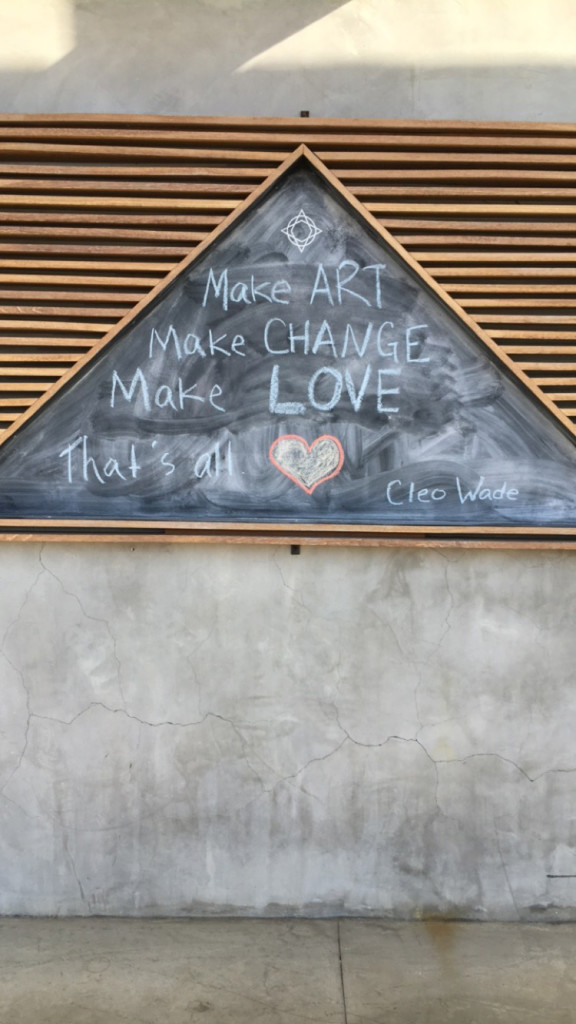 Make ART
Make CHANGE
Make LOVE
That's all.
Cleo Wade